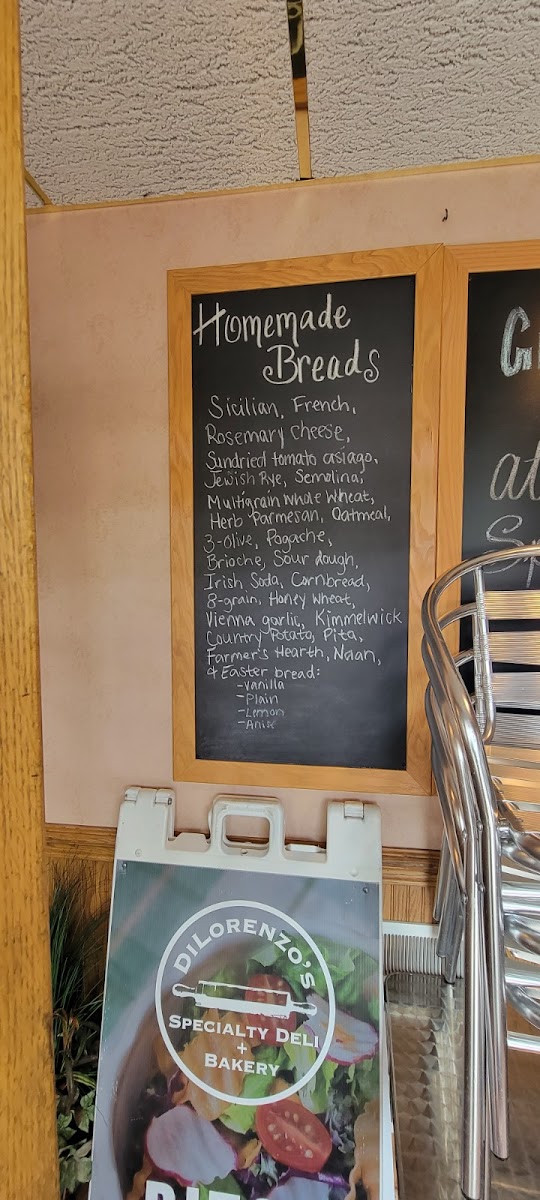 Homemade
Breads
Sicilian, French,
Rosemary cheese,
Sundried tomato asiago,
Jewish Rye, Semolina,
Multigrain whole wheat,
Herb Parmesan, Oatmeal,
3-olive, Pagache,
Brioche, Sour dough,
Irish Soda, Cornbread,
8-grain, Honey wheat,
Vienna garlic, Kimmelwick
Country Potato, Pita,
Farmer's Hearth, Naan,
& Easter bread:
-vanilla
-Plain
-Lemon
-Anise
at
DiLorenzo's
Specialty Deli
+
Bakery